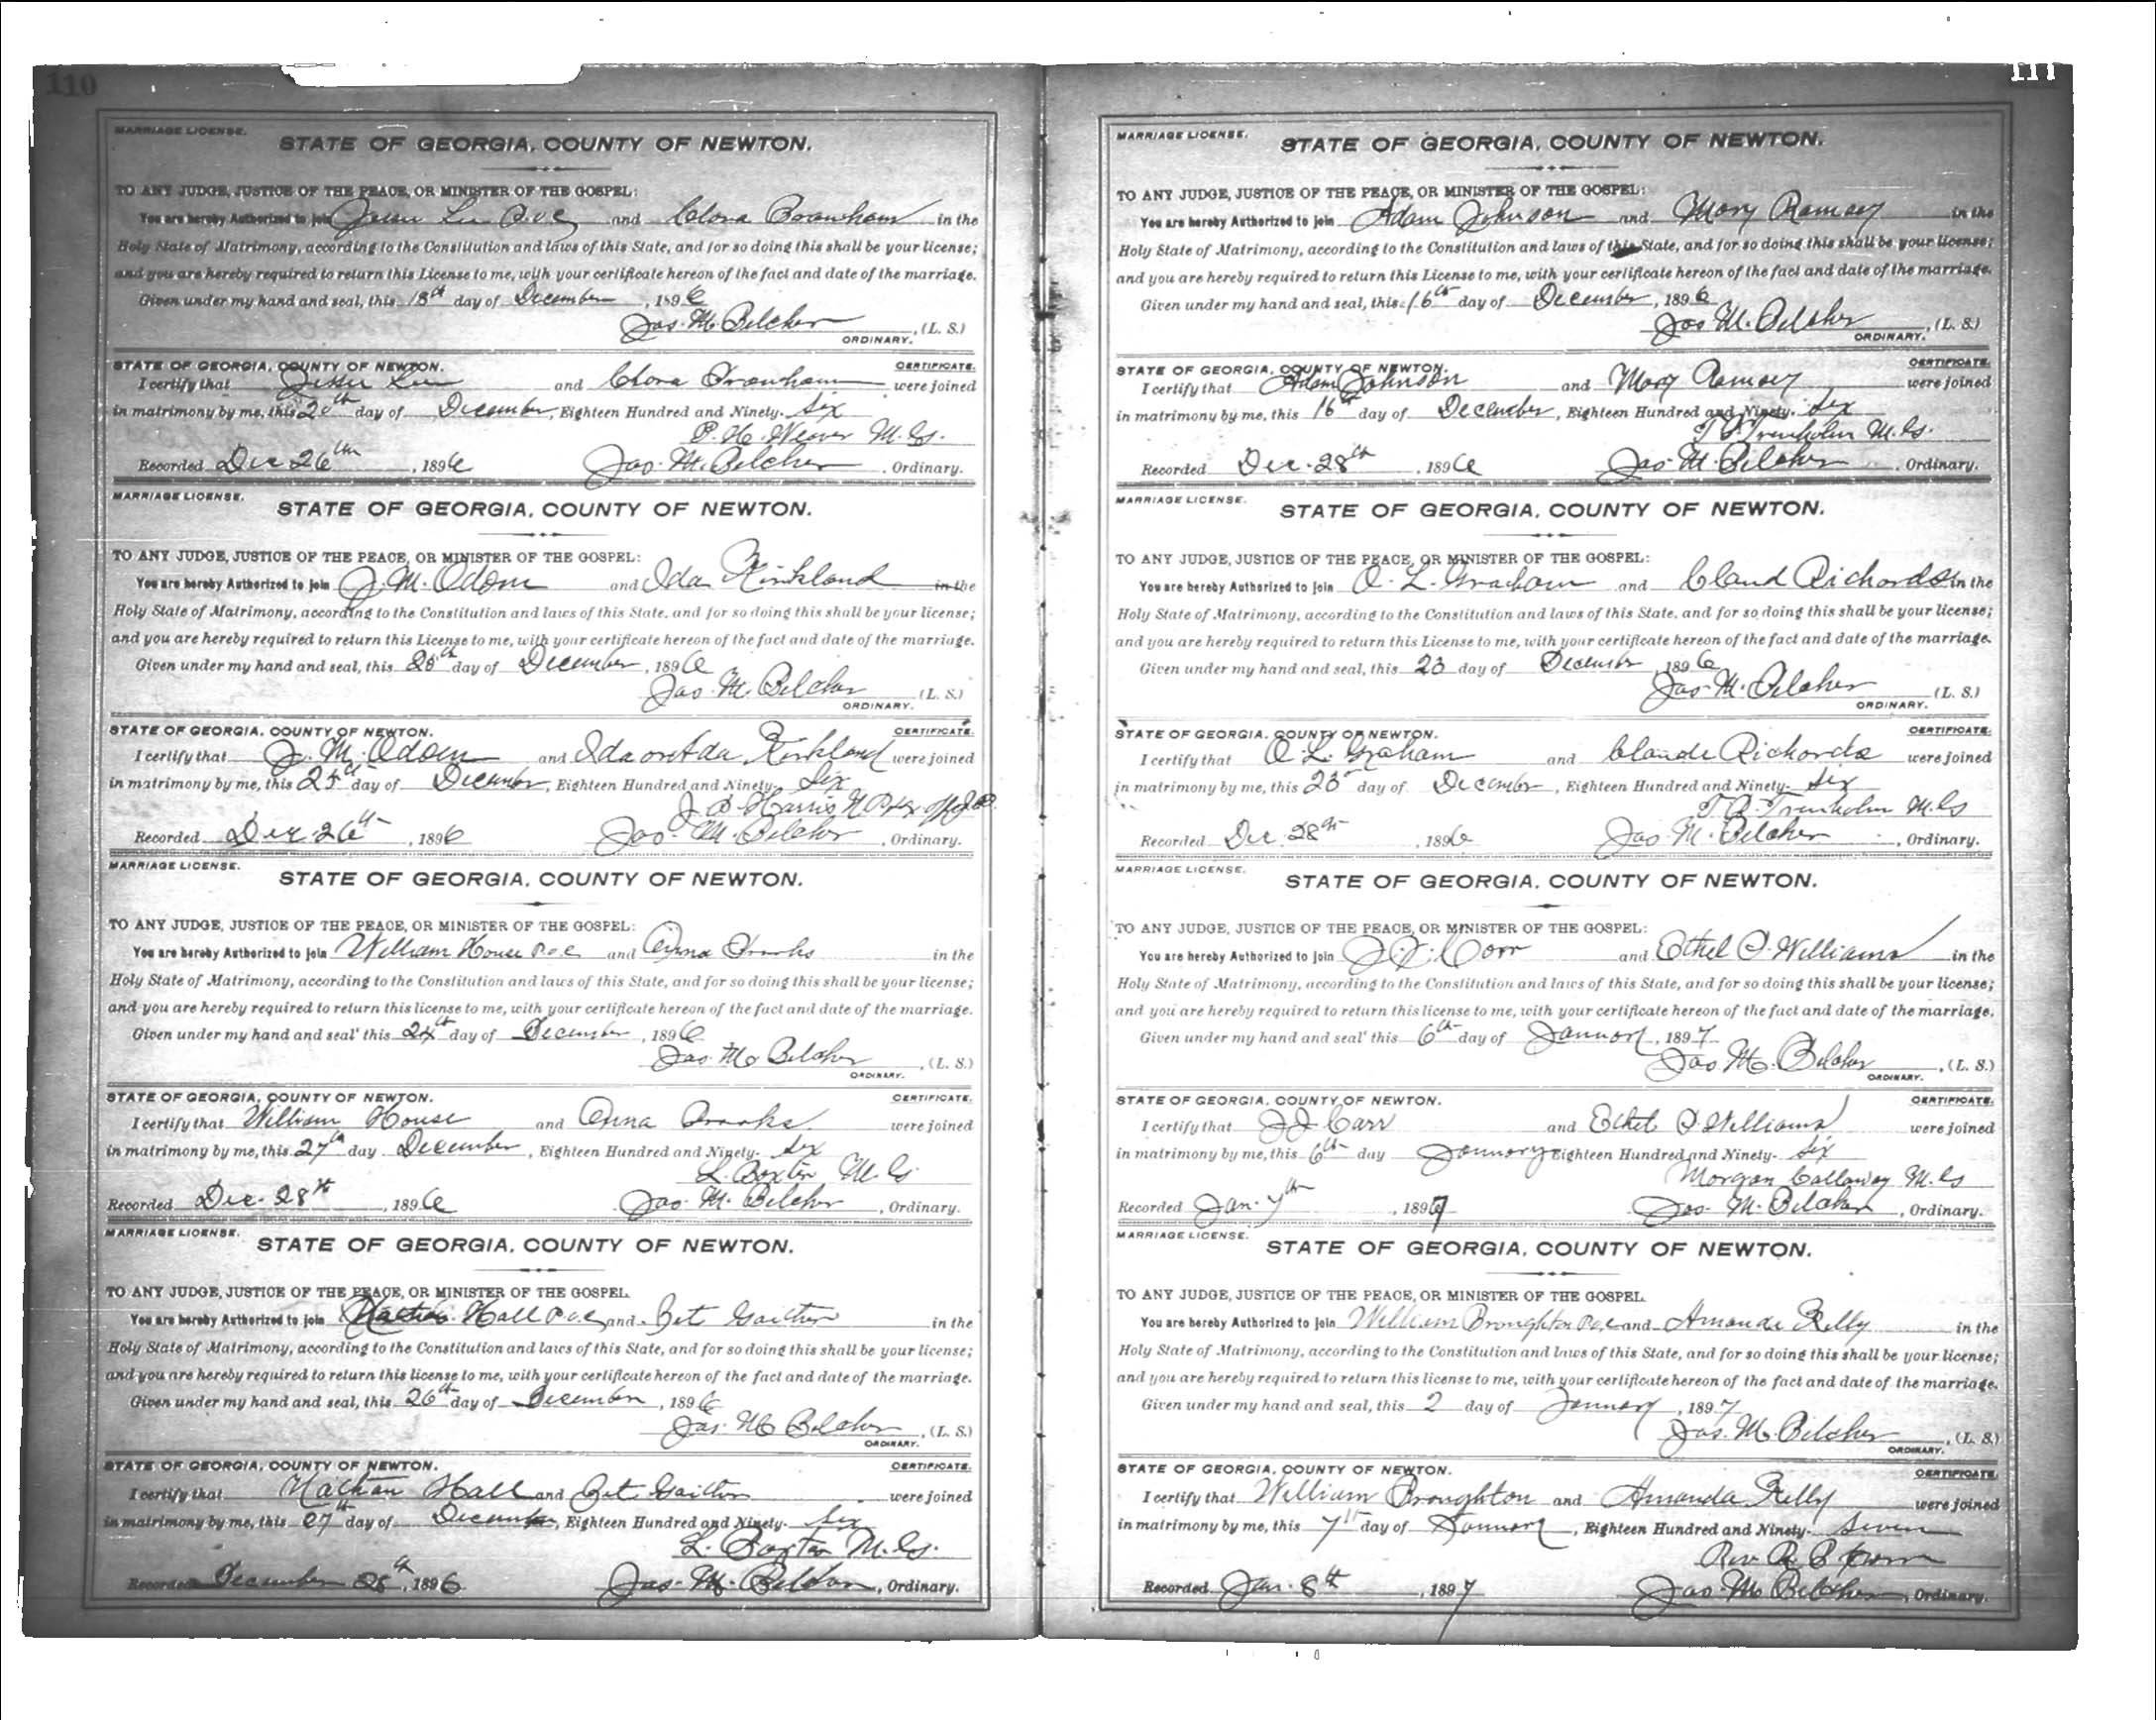 110
MARRIAGE LICENSE.
STATE OF GEORGIA, COUNTY OF NEWTON.
TO ANY JUDGE, JUSTICE OF THE PEACE, OR MINISTER OF THE GOSPEL:
You are hereby Authorized to join Jesse Lee and Clora in the
Holy State of Matrimony, according to the Constitution and laws of this State, and for so doing this shall be your license;
and you are hereby required to return this License to me, with your certificate hereon of the fact and date of the marriage.
Given under my hand and seal, this 18th day of December, 1896
Jas. M. Belcher, (L. S.)
ORDINARY.
STATE OF GEORGIA, COUNTY OF NEWTON. CERTIFICATE.
I certify that Jesse Lee and Clora were joined
in matrimony by me, this 20th day of December, Eighteen Hundred and Ninety- Six
P. H. Weaver M. G.
Recorded Dec 26th, 1896 Jas. M. Belcher, Ordinary.
MARRIAGE LICENSE.
STATE OF GEORGIA, COUNTY OF NEWTON.
TO ANY JUDGE, JUSTICE OF THE PEACE, OR MINISTER OF THE GOSPEL:
You are hereby Authorized to join J. M. Odom and Ida Kirkland in the
Holy State of Matrimony, according to the Constitution and laws of this State, and for so doing this shall be your license;
and you are hereby required to return this License to me, with your certificate hereon of the fact and date of the marriage.
Given under my hand and seal, this day of December, 1896
Jas. M. Belcher (L. S.)
ORDINARY.
STATE OF GEORGIA, COUNTY OF NEWTON. CERTIFICATE.
I certify that J. M. Odom and Ida or Ada Kirkland were joined
in matrimony by me, this 25th day of December, Eighteen Hundred and Ninety- Six
J. B. Harris N P & Ex off J P
Recorded Dec. 26th, 1896 Jas. M. Belcher, Ordinary.
MARRIAGE LICENSE.
STATE OF GEORGIA, COUNTY OF NEWTON.
TO ANY JUDGE, JUSTICE OF THE PEACE, OR MINISTER OF THE GOSPEL:
You are hereby Authorized to join William House P.O.C. and Anna Brooks in the
Holy State of Matrimony, according to the Constitution and laws of this State, and for so doing this shall be your license;
and you are hereby required to return this license to me, with your certificate hereon of the fact and date of the marriage.
Given under my hand and seal' this 24th day of December, 1896
Jas. M. Belcher, (L. S.)
ORDINARY.
STATE OF GEORGIA, COUNTY OF NEWTON. CERTIFICATE.
I certify that William House and Anna Brooks were joined
in matrimony by me, this 27th day December, Eighteen Hundred and Ninety- Six
L. Baxter M. G.
Recorded Dec. 28th, 1896 Jas. M. Belcher, Ordinary.
MARRIAGE LICENSE.
STATE OF GEORGIA, COUNTY OF NEWTON.
TO ANY JUDGE, JUSTICE OF THE PEACE, OR MINISTER OF THE GOSPEL.
You are hereby Authorized to join Nathan Hall P.O.C. and Bet Gaither in the
Holy State of Matrimony, according to the Constitution and laws of this State, and for so doing this shall be your license;
and you are hereby required to return this license to me, with your certificate hereon of the fact and date of the marriage.
Given under my hand and seal, this 26th day of December, 1896
Jas. M. Belcher, (L. S.)
ORDINARY.
STATE OF GEORGIA, COUNTY OF NEWTON. CERTIFICATE.
I certify that Nathan Hall and Bet Gaither were joined
in matrimony by me, this 27th day of December, Eighteen Hundred and Ninety- Six
L. Baxter M. G.
Recorded December 28th, 1896 Jas. M. Belcher, Ordinary.
111
MARRIAGE LICENSE.
STATE OF GEORGIA, COUNTY OF NEWTON.
TO ANY JUDGE, JUSTICE OF THE PEACE, OR MINISTER OF THE GOSPEL:
You are hereby Authorized to join Adam Johnson and Mary Ramsey in the
Holy State of Matrimony, according to the Constitution and laws of this State, and for so doing this shall be your license;
and you are hereby required to return this License to me, with your certificate hereon of the fact and date of the marriage.
Given under my hand and seal, this 16th day of December, 1896
Jas. M. Belcher, (L. S.)
ORDINARY.
STATE OF GEORGIA, COUNTY OF NEWTON. CERTIFICATE.
I certify that Adam Johnson and Mary Ramsey were joined
in matrimony by me, this 16th day of December, Eighteen Hundred and Ninety- Six
Trenholm M. G.
Recorded Dec. 28th, 1896 Jas. M. Belcher, Ordinary.
MARRIAGE LICENSE.
STATE OF GEORGIA, COUNTY OF NEWTON.
TO ANY JUDGE, JUSTICE OF THE PEACE, OR MINISTER OF THE GOSPEL:
You are hereby Authorized to join O. L. Graham and Claud Richards in the
Holy State of Matrimony, according to the Constitution and laws of this State, and for so doing this shall be your license;
and you are hereby required to return this License to me, with your certificate hereon of the fact and date of the marriage.
Given under my hand and seal, this 23 day of December, 1896
Jas. M. Belcher (L. S.)
ORDINARY.
STATE OF GEORGIA, COUNTY OF NEWTON. CERTIFICATE.
I certify that O. L. Graham and Claude Richards were joined
in matrimony by me, this 23 day of December, Eighteen Hundred and Ninety- Six
Trenholm M. G.
Recorded Dec. 28th, 1896 Jas. M. Belcher, Ordinary.
MARRIAGE LICENSE.
STATE OF GEORGIA, COUNTY OF NEWTON.
TO ANY JUDGE, JUSTICE OF THE PEACE, OR MINISTER OF THE GOSPEL:
You are hereby Authorized to join J. J. Carr and Ethel P. Williams in the
Holy State of Matrimony, according to the Constitution and laws of this State, and for so doing this shall be your license;
and you are hereby required to return this license to me, with your certificate hereon of the fact and date of the marriage.
Given under my hand and seal' this 6th day of January, 1897
Jas. M. Belcher, (L. S.)
ORDINARY.
STATE OF GEORGIA, COUNTY OF NEWTON. CERTIFICATE.
I certify that J J Carr and Ethel P. Williams were joined
in matrimony by me, this 6th day January Eighteen Hundred and Ninety- Six
Morgan Callaway M. G.
Recorded Jan. 7th, 1897 Jas. M. Belcher, Ordinary.
MARRIAGE LICENSE.
STATE OF GEORGIA, COUNTY OF NEWTON.
TO ANY JUDGE, JUSTICE OF THE PEACE, OR MINISTER OF THE GOSPEL.
You are hereby Authorized to join William Broughton P.O.C. and Amanda Kelly in the
Holy State of Matrimony, according to the Constitution and laws of this State, and for so doing this shall be your license;
and you are hereby required to return this license to me, with your certificate hereon of the fact and date of the marriage.
Given under my hand and seal, this 2 day of January, 1897
Jas. M. Belcher, (L. S.)
ORDINARY.
STATE OF GEORGIA, COUNTY OF NEWTON. CERTIFICATE.
I certify that William Broughton and Amanda Kelly were joined
in matrimony by me, this 7th day of January, Eighteen Hundred and Ninety- Seven
Rev.
Recorded Jan. 8th, 1897 Jas. M. Belcher, Ordinary.